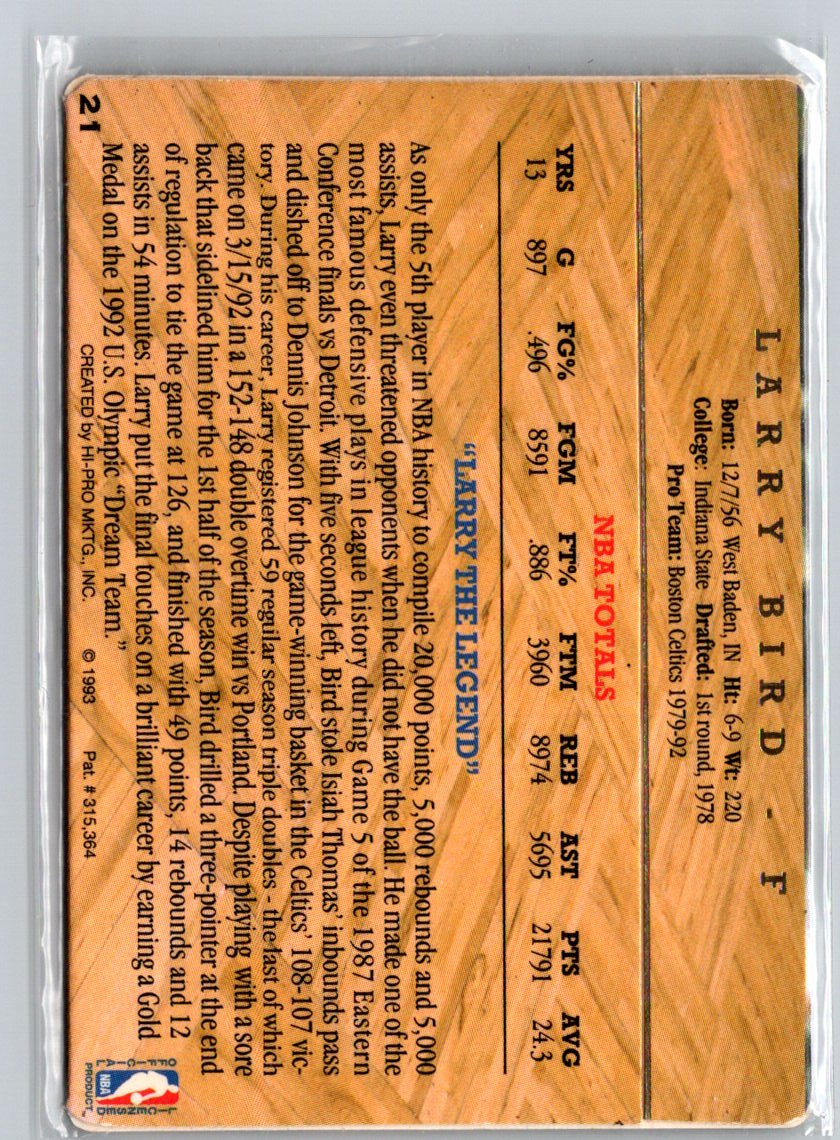 LARRY BIRD - F
Born: 12/7/56 West Baden, IN Ht: 6-9 Wt: 220
College: Indiana State Drafted: 1st round, 1978
Pro Team: Boston Celtics 1979-92
NBA TOTALS
YRS G FG% FGM FT% FTM REB AST PTS AVG
13 897 .496 8591 .886 3960 8974 5695 21791 24.3
“LARRY THE LEGEND”
As only the 5th player in NBA history to compile 20,000 points, 5,000 rebounds and 5,000
assists, Larry even threatened opponents when he did not have the ball. He made one of the
most famous defensive plays in league history during Game 5 of the 1987 Eastern
Conference finals vs Detroit. With five seconds left, Bird stole Isiah Thomas’ inbounds pass
and dished off to Dennis Johnson for the game-winning basket in the Celtics’ 108-107 vic-
tory. During his career, Larry registered 59 regular season triple doubles - the last of which
came on 3/15/92 in a 152-148 double overtime win vs Portland. Despite playing with a sore
back that sidelined him for the 1st half of the season, Bird drilled a three-pointer at the end
of regulation to tie the game at 126, and finished with 49 points, 14 rebounds and 12
assists in 54 minutes. Larry put the final touches on a brilliant career by earning a Gold
Medal on the 1992 U.S. Olympic “Dream Team.”
21
CREATED by HI-PRO MKTG., INC. © 1993 Pat. # 315,364
OFFICIAL LICENSED
NBA
PRODUCT™